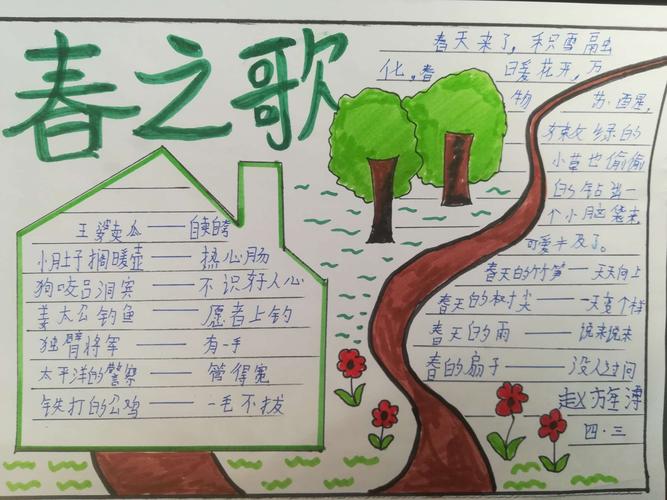 春之歌
王婆卖瓜——自卖自夸
小肚子搁暖壶——热心肠
狗咬吕洞宾——不识好人心
姜太公钓鱼——愿者上钓
独臂将军——有一手
太平洋的警察——管得宽
铁打的公鸡——一毛不拔
春天来了,积雪融
化,春 日暖花开,万
物 苏醒,
嫩绿的
小草也偷偷
的钻出一
个小脑袋来
可爱
春天的竹笋——天天向上
春天的树尖——一天变个样
春天的雨——说来就来
春的扇子——没人过问
赵
四·三